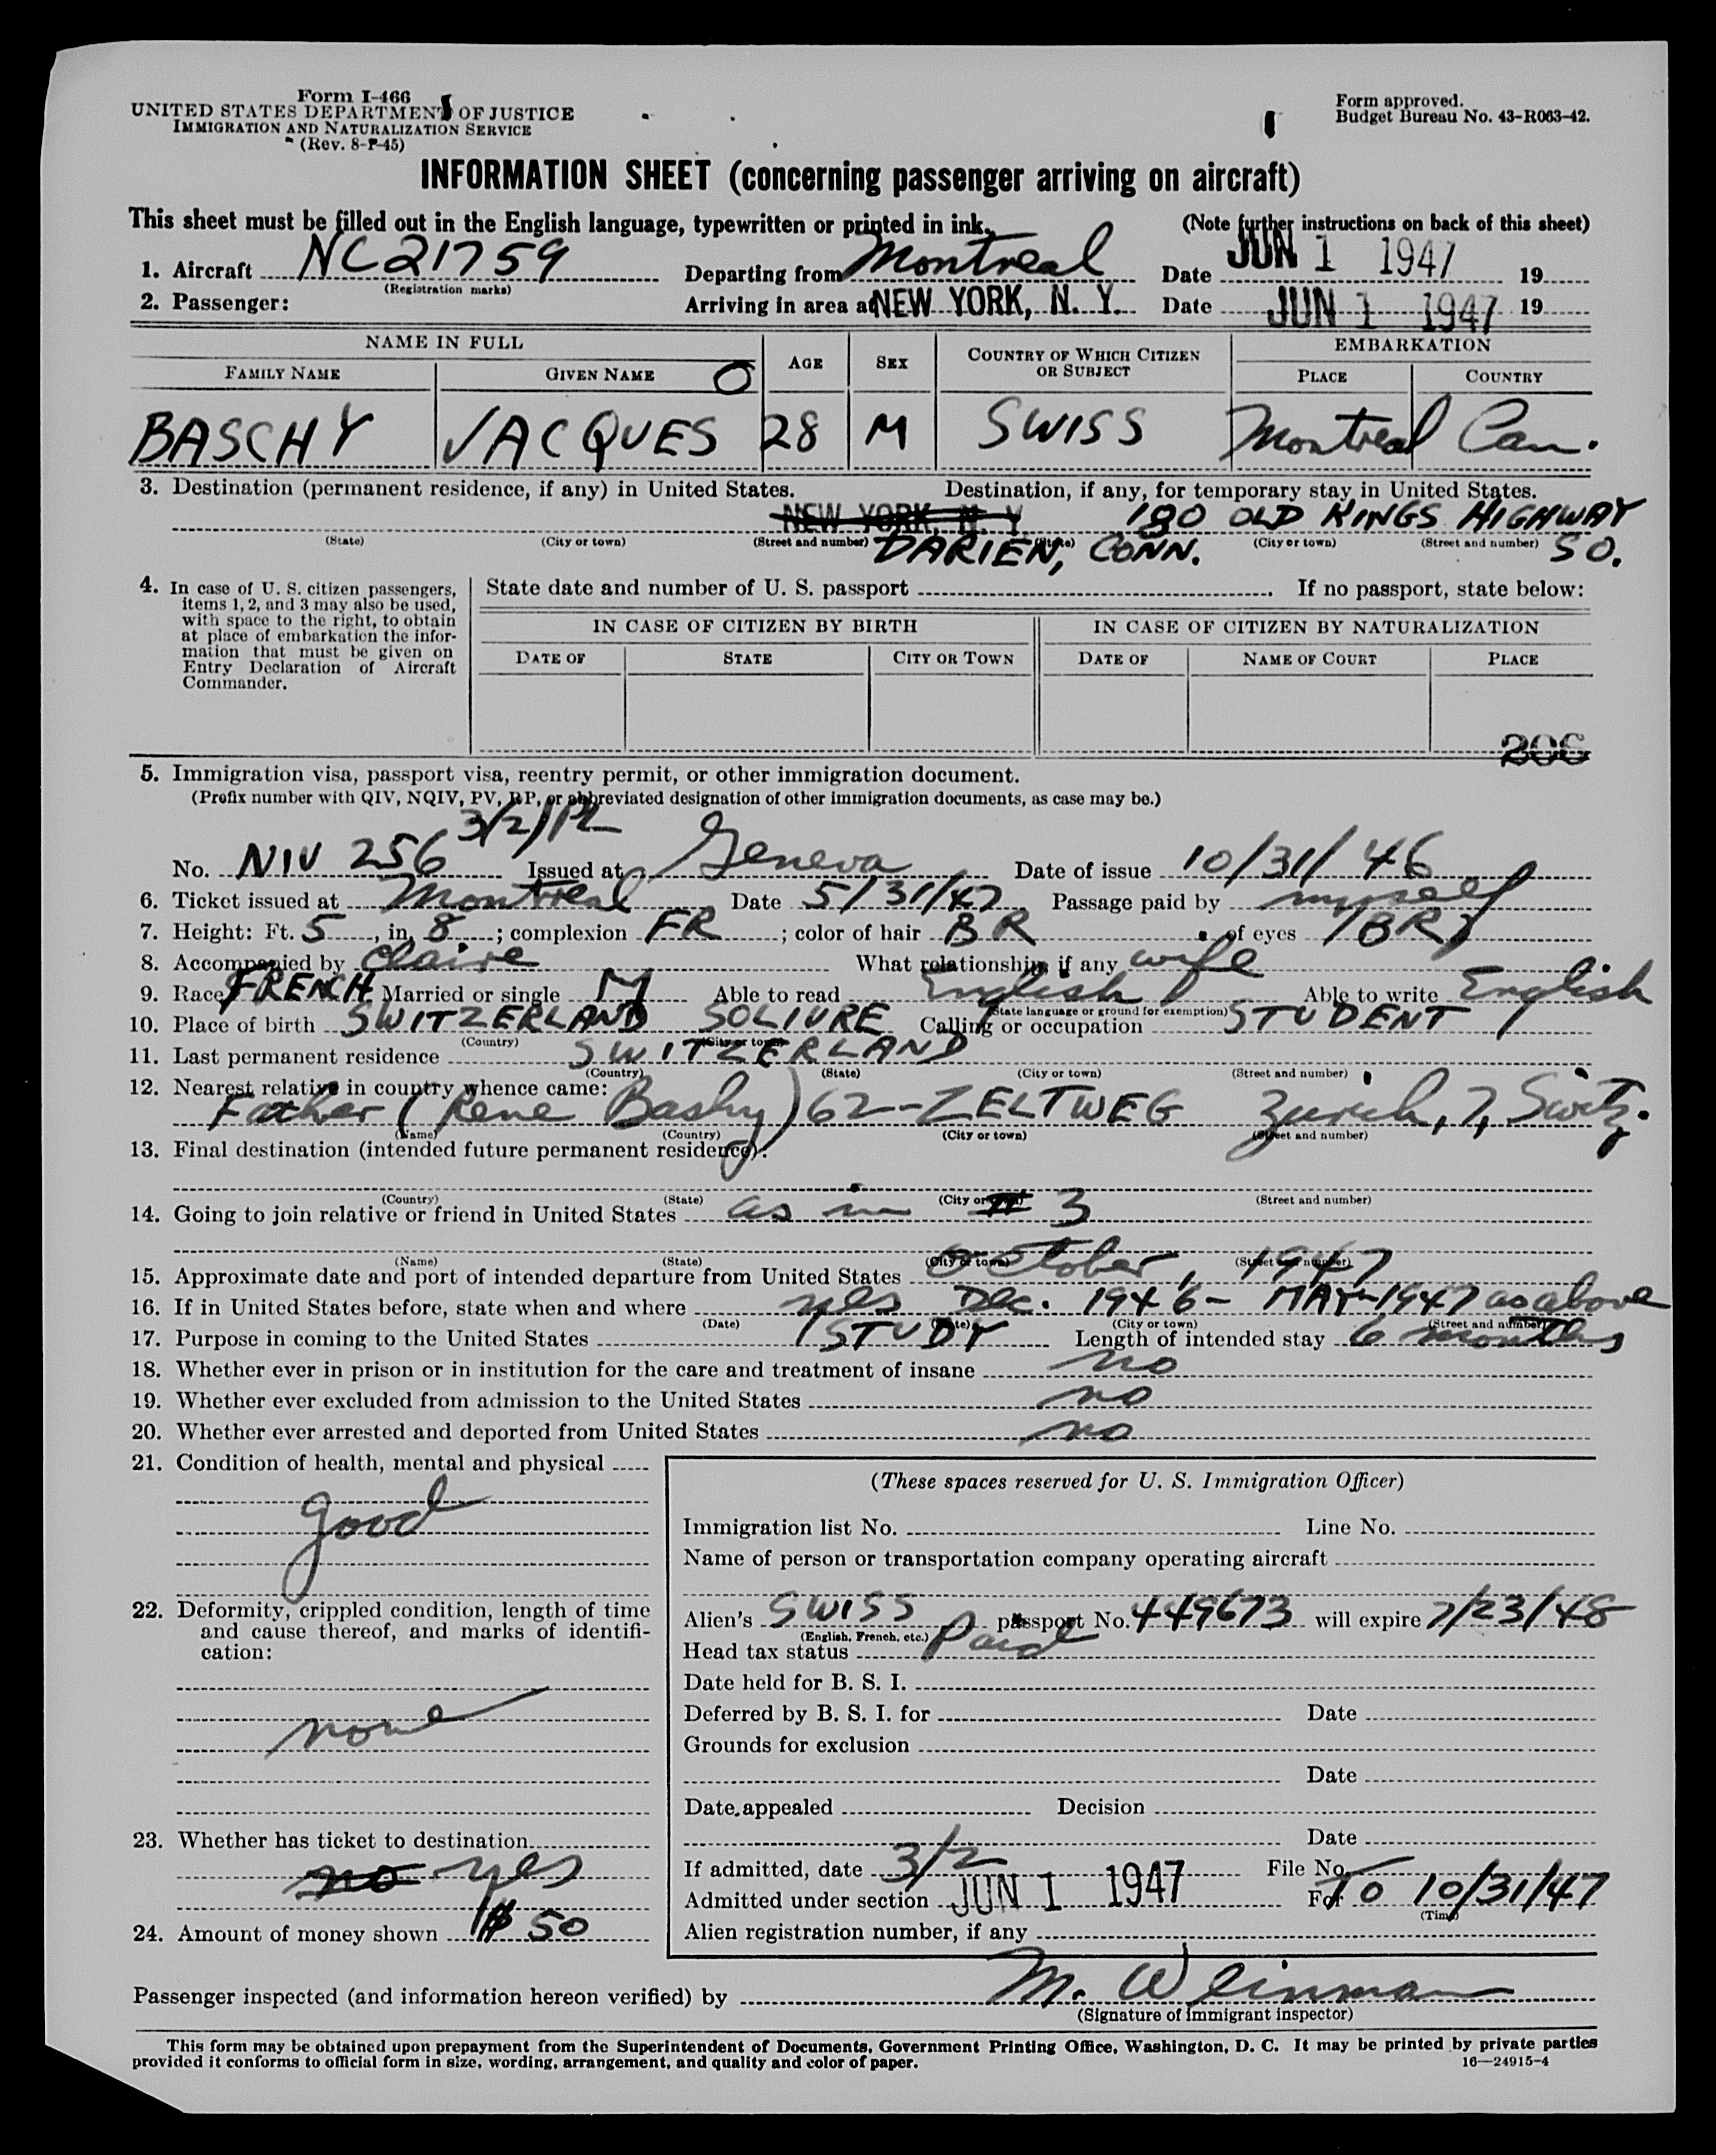 Form I-466
UNITED STATES DEPARTMENT OF JUSTICE
IMMIGRATION AND NATURALIZATION SERVICE
(Rev. 8-1-45)
Form approved.
Budget Bureau No. 43-R063-42.
INFORMATION SHEET (concerning passenger arriving on aircraft)
This sheet must be filled out in the English language, typewritten or printed in ink. (Note further instructions on back of this sheet)
1. Aircraft NC21759 Departing from Montreal Date JUN 1 1947 19
(Registration marks)
2. Passenger: Arriving in area at NEW YORK, N. Y. Date JUN 1 1947 19
NAME IN FULL AGE SEX COUNTRY OF WHICH CITIZEN OR SUBJECT EMBARKATION
FAMILY NAME GIVEN NAME PLACE COUNTRY
BASCHY JACQUES 28 M SWISS Montreal Can.
3. Destination (permanent residence, if any) in United States. Destination, if any, for temporary stay in United States.
NEW YORK, N. Y. 180 OLD KINGS HIGHWAY
(State) (City or town) (Street and number) (State) (City or town) (Street and number)
DARIEN, CONN. SO.
4. In case of U. S. citizen passengers, items 1, 2, and 3 may also be used, with space to the right, to obtain at place of embarkation the information that must be given on Entry Declaration of Aircraft Commander.
State date and number of U. S. passport . If no passport, state below:
IN CASE OF CITIZEN BY BIRTH IN CASE OF CITIZEN BY NATURALIZATION
DATE OF STATE CITY OR TOWN DATE OF NAME OF COURT PLACE
206
5. Immigration visa, passport visa, reentry permit, or other immigration document.
(Prefix number with QIV, NQIV, PV, RP, or abbreviated designation of other immigration documents, as case may be.)
3/2)
No. NIV 256 Issued at Geneva Date of issue 10/31/46
6. Ticket issued at Montreal Date 5/31/47 Passage paid by myself
7. Height: Ft. 5, in. 8; complexion FR; color of hair BR of eyes BR
8. Accompanied by Claire What relationship, if any wife
9. Race FRENCH Married or single M Able to read English Able to write English
(State language or ground for exemption)
10. Place of birth SWITZERLAND SOLIURE Calling or occupation STUDENT
(Country) (City or town)
11. Last permanent residence SWITZERLAND
(Country) (State) (City or town) (Street and number)
12. Nearest relative in country whence came:
Father (Rene Bashy) 62-ZELTWEG Zurich, 7, Switz.
(Name) (Country) (City or town) (Street and number)
13. Final destination (intended future permanent residence):
(Country) (State) (City or town) (Street and number)
14. Going to join relative or friend in United States as in # 3
(Name) (State) (City or town) (Street and number)
15. Approximate date and port of intended departure from United States October, 1947
16. If in United States before, state when and where yes Dec. 1946 - MAY-1947 as above
(Date) (State) (City or town) (Street and number)
17. Purpose in coming to the United States STUDY Length of intended stay 6 months
18. Whether ever in prison or in institution for the care and treatment of insane no
19. Whether ever excluded from admission to the United States no
20. Whether ever arrested and deported from United States no
21. Condition of health, mental and physical
good
22. Deformity, crippled condition, length of time and cause thereof, and marks of identification:
none
23. Whether has ticket to destination
no yes
24. Amount of money shown $ 50
(These spaces reserved for U. S. Immigration Officer)
Immigration list No. Line No.
Name of person or transportation company operating aircraft
Alien's SWISS passport No. 449673 will expire 7/23/48
(English, French, etc.)
Head tax status Paid
Date held for B. S. I.
Deferred by B. S. I. for Date
Grounds for exclusion
Date
Date appealed Decision
Date
If admitted, date 3/2 File No.
Admitted under section JUN 1 1947 For TO 10/31/47
(Time)
Alien registration number, if any
Passenger inspected (and information hereon verified) by M. Weinman
(Signature of immigrant inspector)
This form may be obtained upon prepayment from the Superintendent of Documents, Government Printing Office, Washington, D. C. It may be printed by private parties
provided it conforms to official form in size, wording, arrangement, and quality and color of paper. 16—24915-4